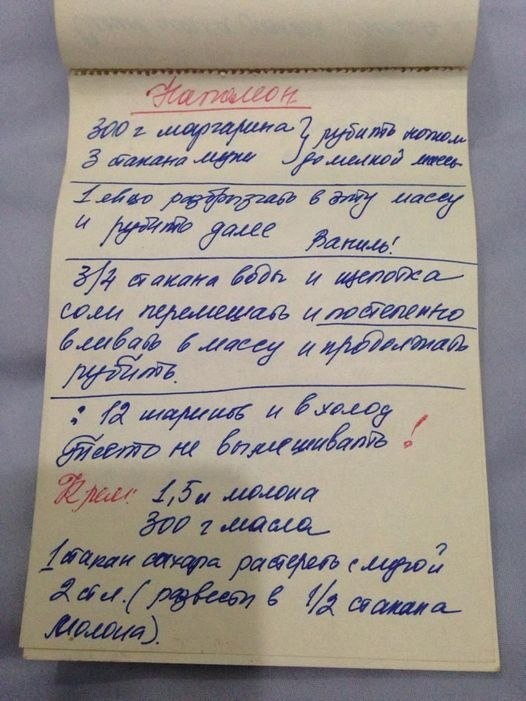 Наполеон
300 г маргарина } рубить ножом
3 стакана муки } до мелкой массы
1 яйцо разбрызгать в эту массу
и рубить далее Ваниль!
3/4 стакана воды и щепотка
соли перемешать и постепенно
вливать в массу и продолжать
рубить.
: 12 шариков и в холод
Тесто не вымешивать !
Крем: 1,5 л молока
300 г масла
1 стакан сахара растереть с мукой
2 ст л. ( развести в 1/2 стакана
молока).